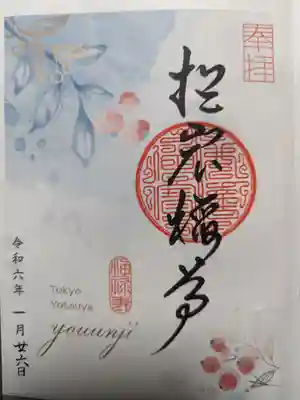 奉拝
於岩稲荷
令和六年 一月廿六日
Tokyo
Yotsuya
youunji